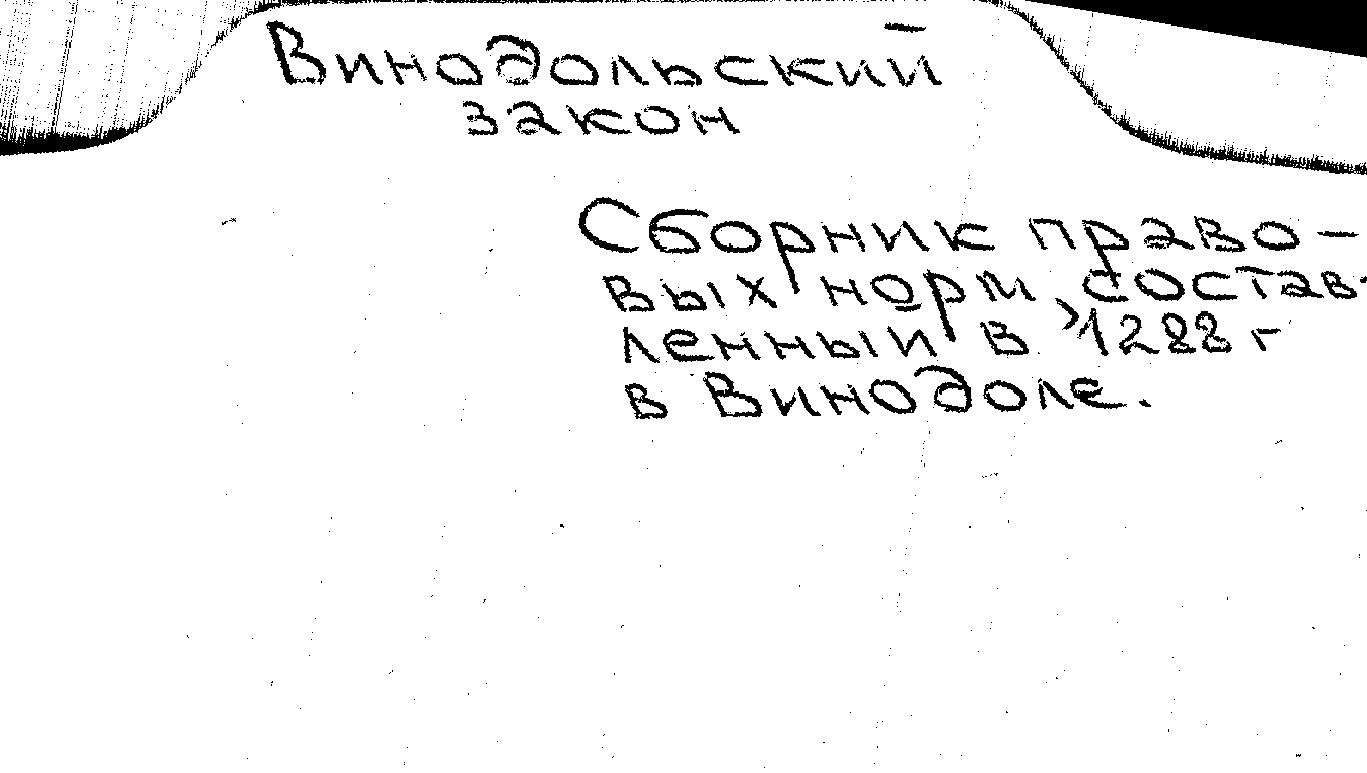 Винодольский
закон
Сборник право-
вых норм, состав-
ленный в 1288 г
в Винодоле.